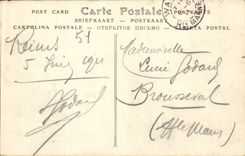 POST CARD Carte Postale POSTKARTE
CARTOLINA POSTALE BRIEFKAART ОТКРЫТОЕ ПИСЬМО TARJETA POSTAL
Reims 51
5 Juin 1911
Godard
Mademoiselle
Lucie Godard
Brousseval
(Hte Marne)